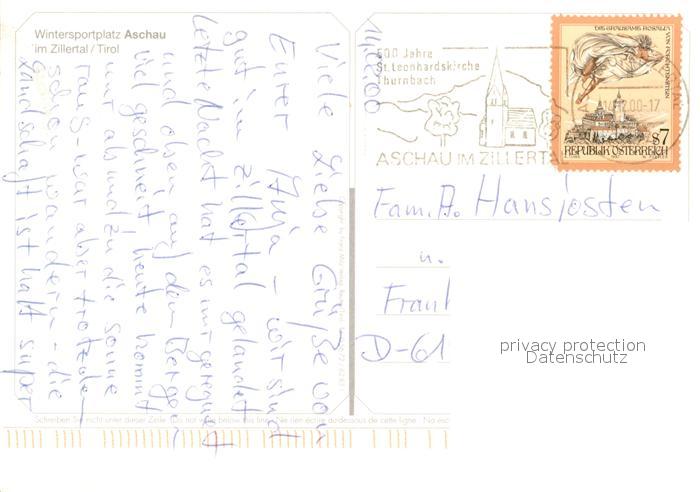 Wintersportplatz Aschau
im Zillertal / Tirol
14.12.00
Viele Liebe Grüße von
Eurer Anja – wir sind
gut im Zillertal gelandet
Letzte Nacht hat es nur geregnet
und oben auf den Bergen
viel geschneit heute kommt
nur ab und zu die Sonne
raus – war aber trotzdem
schon wandern – die
Landschaft ist halt super
500 Jahre
St. Leonhardskirche
Thurnbach
ASCHAU IM ZILLERTAL
14.12.00-17
DIE GRAUSAME ROSALIA
VON FORCHTENSTEIN
S7
REPUBLIK ÖSTERREICH
Fam. A. Hansjosten
u.
D-61
privacy protection
Datenschutz
Schreiben Sie nicht unter dieser Zeile / Do not write below this line / Ne rien écrire au-dessous de cette ligne